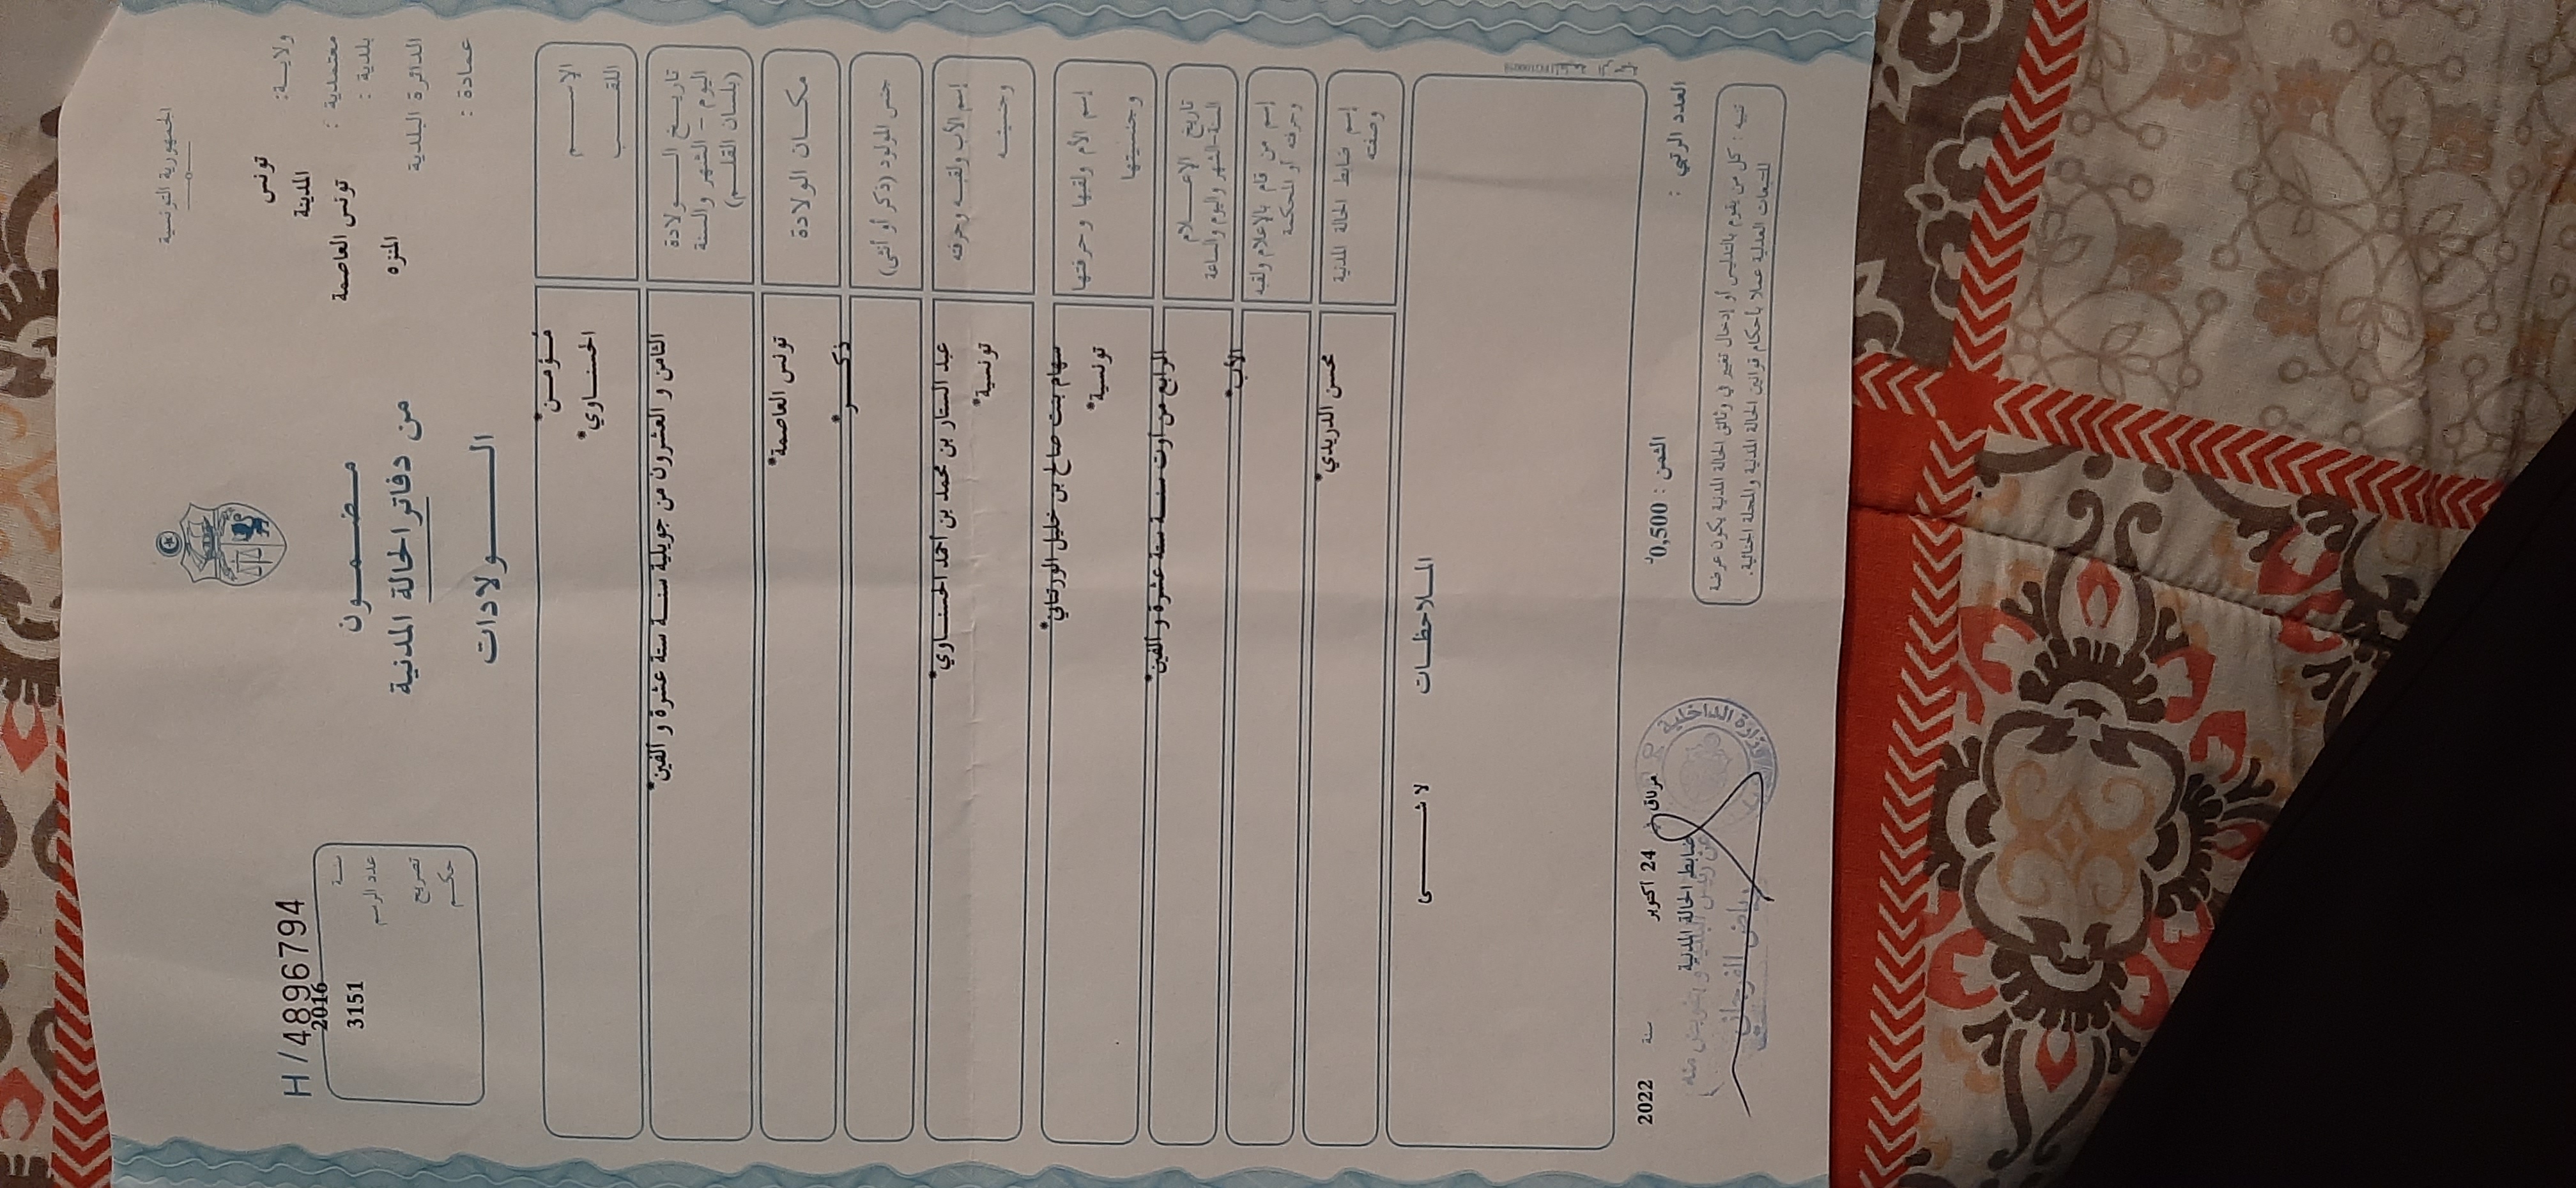 الجمهورية التونسية
ولاية: تونس
معتمدية : المدينة
بلدية : تونس العاصمة
الدائرة البلدية المنزه
عمادة :
مضمون
من دفاتر الحالة المدنية
الولادات
H/4896794
سنة 2016
عدد الرسم 3151
تصريح
حكم
الإسم مؤمن*
اللقب الحسناوي*
تاريخ الولادة
اليوم - الشهر والسنة
(بلسان القلم)
الثامن و العشرون من جويلية سنة ستة عشرة و ألفين*
مكان الولادة تونس العاصمة*
جنس المولود (ذكر أو أنثى) ذكر*
إسم الأب ولقبه وحرفته عبد الستار بن محمد بن أحمد الحسناوي*
وجنسيته تونسية*
إسم الأم ولقبها وحرفتها سهام بنت صالح بن خليل الورتاني*
وجنسيتها تونسية*
تاريخ الإعلام
السنة-الشهر واليوم والساعة
الرابع من أوت سنة ستة عشرة و ألفين*
إسم من قام بالإعلام ولقبه الأب*
وحرفته أو المحكمة
إسم ضابط الحالة المدنية محسن الدريدي*
وصفته
الملاحظات
لا شىء
العدد الرتبي :
الثمن : 0,500د
مرناق في 24 أكتوبر سنة 2022
ضابط الحالة المدنية
عن رئيس البلدية و بتفويض منه
رياض الفرجاني
وزارة الداخلية
تنبيه : كل من يقوم بالتدليس أو إدخال تغيير في وثائق الحالة المدنية يكون عرضة
للتتبعات العدلية عملا بأحكام قوانين الحالة المدنية والمجلة الجنائية.